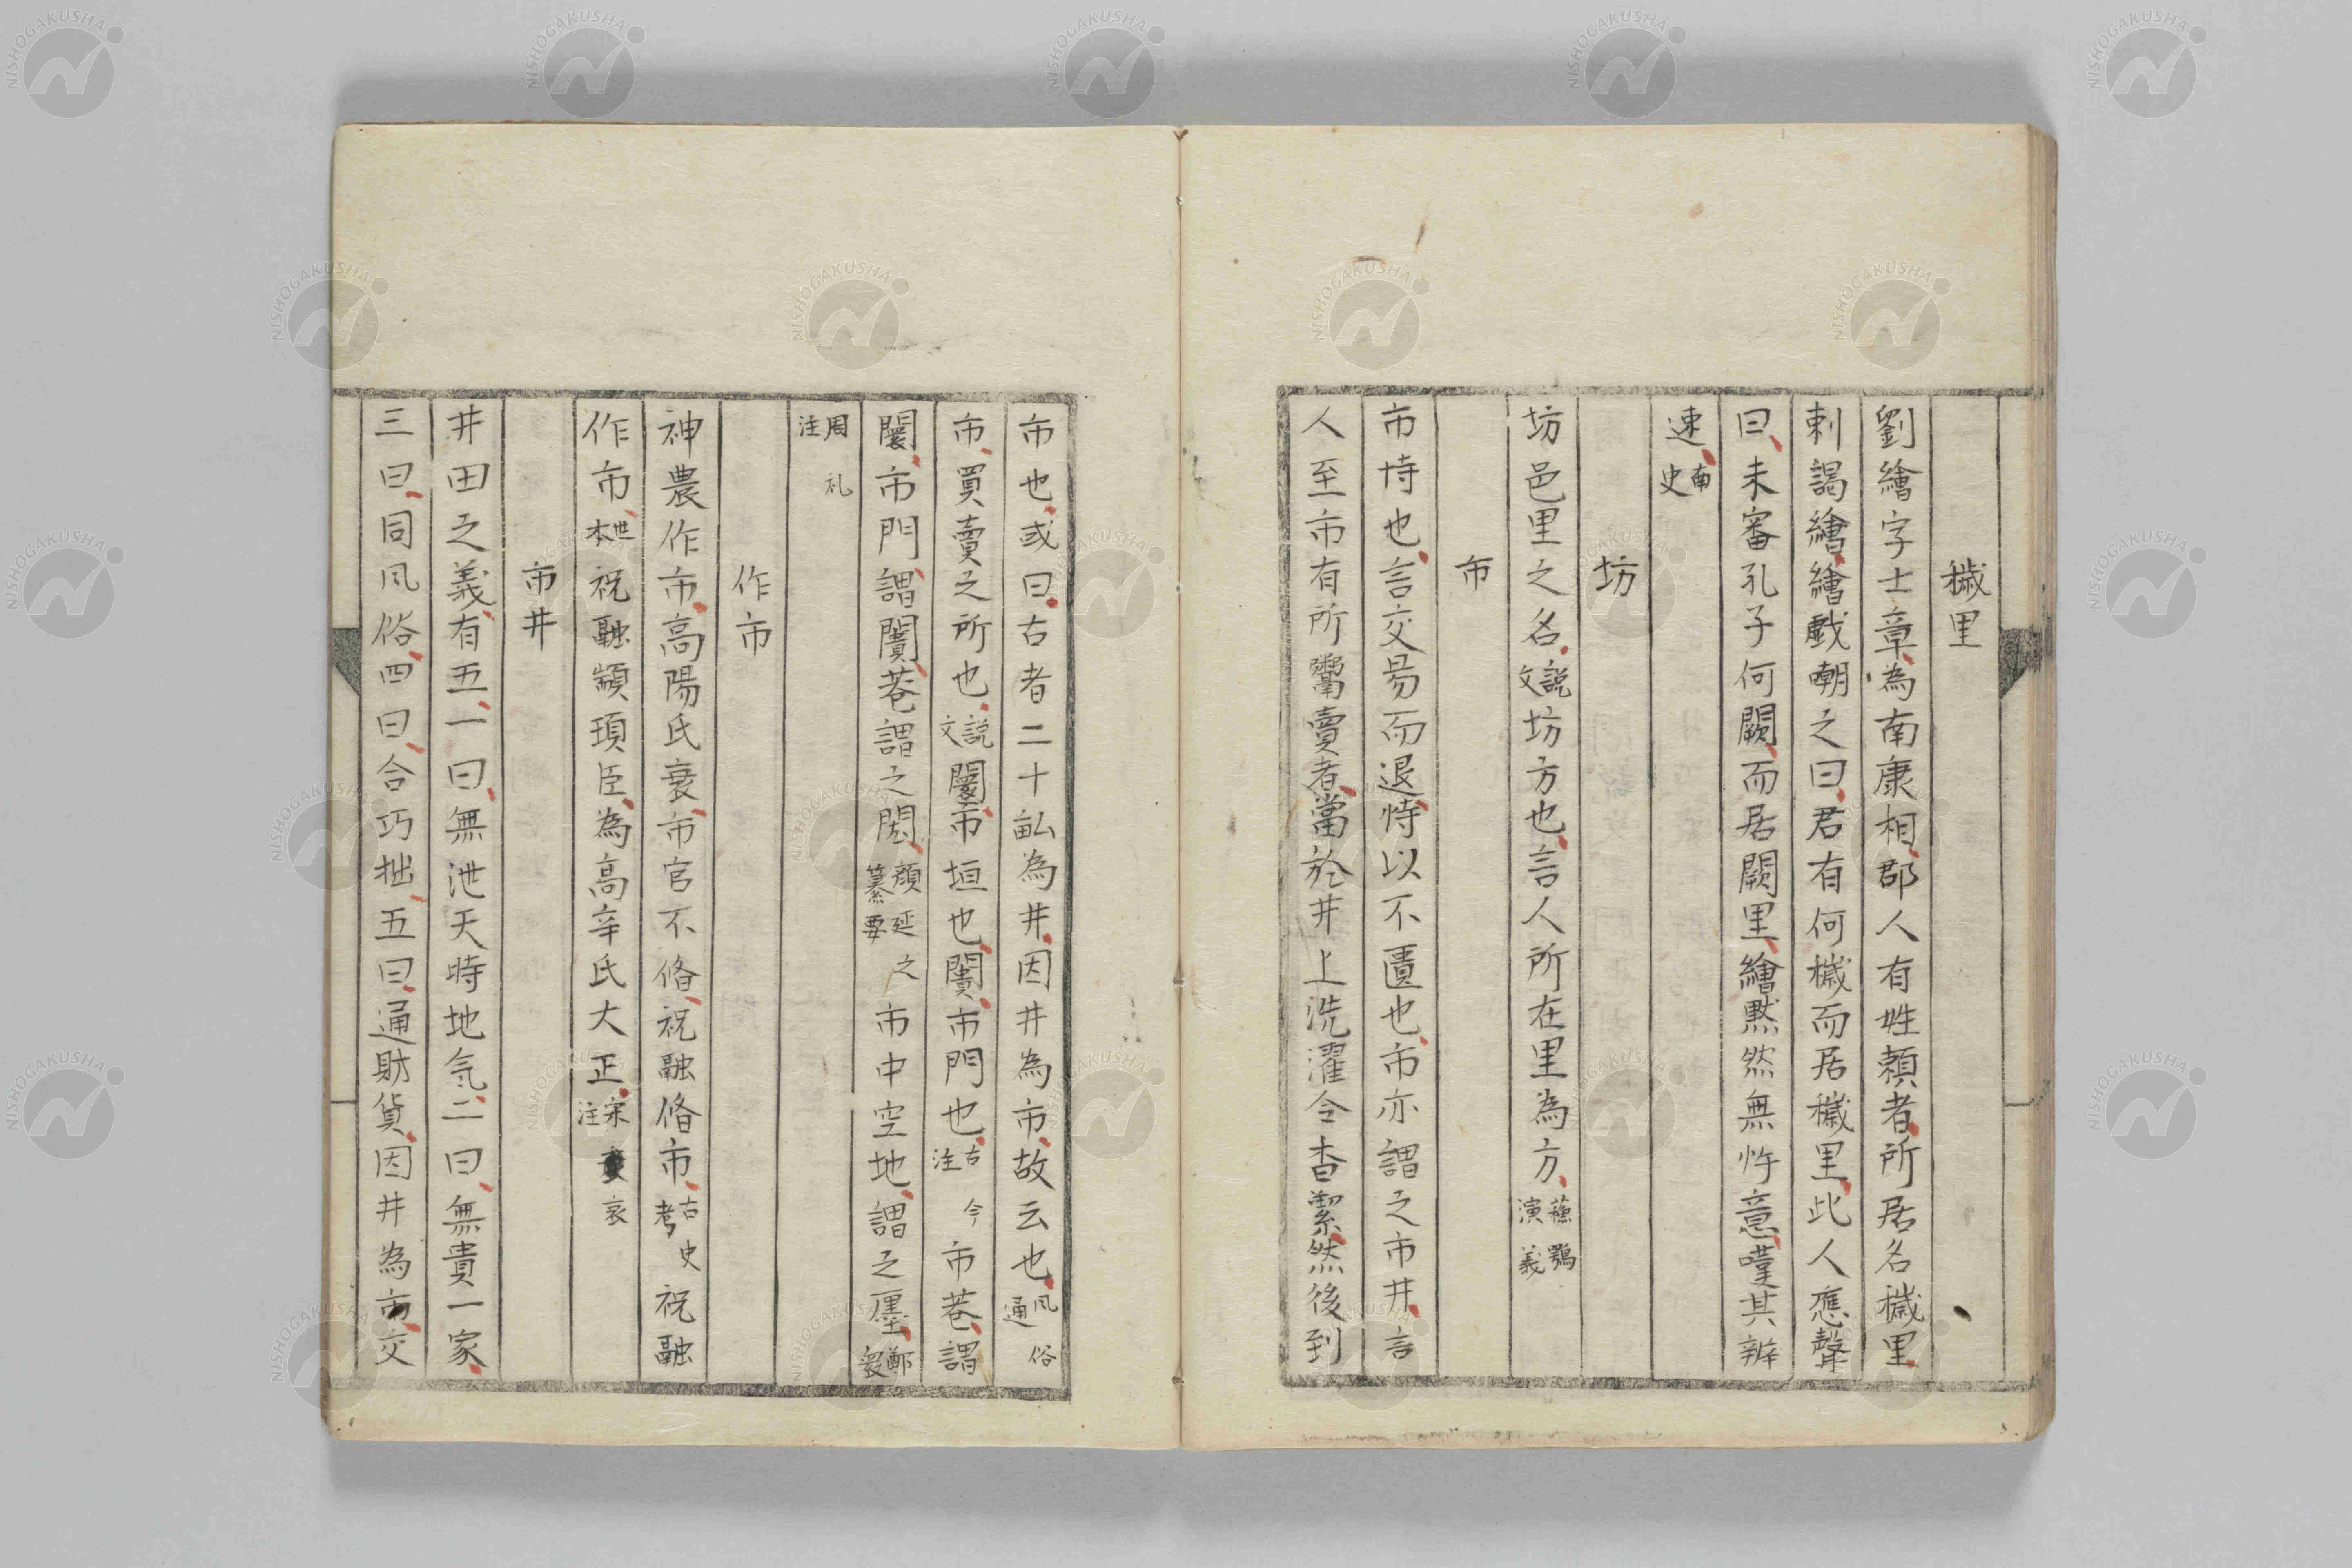 穢里
劉繪字士章為南康相郡人有姓頼者所居名穢里
刺謁繪繪戯嘲之曰君有何穢而居穢里此人應聲
曰未審孔子何闕而居闕里繪黙然無忤意嘆其辨
速南史
坊
坊邑里之名說文坊方也言人所在里為方蘓鶚演義
市
市恃也言交易而退恃以不匱也市亦謂之市井言
人至市有所鬻賣者當於井上洗濯令香潔然後到
市也或曰古者二十畆為井因井為市故云也風俗通
市買賣之所也說文闤市垣也闠市門也古今注市巷謂
闤市門謂闠巷謂之閎顔延之纂要市中空地謂之廛鄭衆
周礼注
作市
神農作市高陽氏衰市官不脩祝融脩市古史考祝融
作市世本祝融顓頊臣為高辛氏大正宋衷注
市井
井田之義有五一曰無泄天時地氣二曰無貴一家
三曰同風俗四曰合巧拙五曰通財貨因井為市交
NISHOGAKUSHA